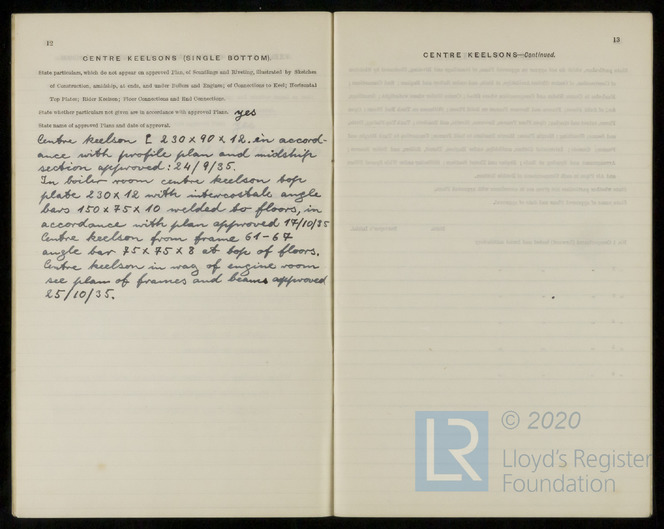 12
CENTRE KEELSONS (SINGLE BOTTOM).
State particulars, which do not appear on approved Plan, of Scantlings and Riveting, illustrated by Sketches
of Construction, amidship, at ends, and under Boilers and Engines; of Connections to Keel; Horizontal
Top Plates; Rider Keelson; Floor Connections and End Connections.
State whether particulars not given are in accordance with approved Plans. yes
State name of approved Plans and date of approval.
Centre keelson [ 230 x 90 x 12. in accord-
ance with profile plan and midship
section approved: 24/9/35.
In boiler room centre keelson top
plate 230 x 12 with intercostals angle
bars 150 x 75 x 10 welded to floors, in
accordance with plan approved 17/10/35
Centre keelson from frame 61-67
angle bar 75 x 75 x 8 at top of floors.
Centre keelson in way of engine room
see plan of frames and beams approved
25/10/35.
13
CENTRE KEELSONS—Continued.
LR
© 2020
Lloyd's Register
Foundation